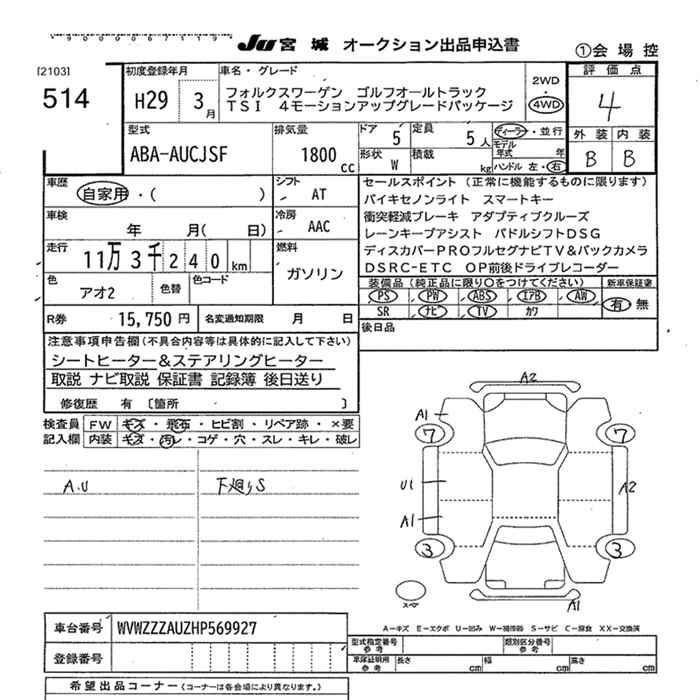 JU 宮城 オークション出品申込書
①会場控
[2103]
514
初度登録年月
H29 3月
車名・グレード
フォルクスワーゲン ゴルフオールトラック
TSI 4モーションアップグレードパッケージ
2WD
・
4WD
評価点
4
外装 内装
B B
型式
ABA-AUCJSF
排気量
1800 cc
ドア 5
定員 5人
ディーラー・並行
形状 W
積載 kg
モデル年式 年
ハンドル 左・右
車歴
自家用・( )
シフト AT
車検
年 月( 日)
冷房 AAC
走行
11万3千240km
燃料
ガソリン
色
アオ2
色替
色コード
R券 15,750円
名変通知期限 月 日
セールスポイント(正常に機能するものに限ります)
バイキセノンライト スマートキー
衝突軽減ブレーキ アダプティブクルーズ
レーンキープアシスト パドルシフトDSG
ディスカバーPROフルセグナビTV&バックカメラ
DSRC-ETC OP前後ドライブレコーダー
装備品(純正品に限り○をつけてください)
新車保証書
PS PW ABS エアB AW
SR ナビ TV カワ
有 無
後日品
注意事項申告欄(不具合内容等は具体的に記入して下さい)
シートヒーター&ステアリングヒーター
取説 ナビ取説 保証書 記録簿 後日送り
修復歴 有 〔箇所 〕
検査員記入欄
FW キズ・飛石・ヒビ割・リペア跡・×要
内装 キズ・汚レ・コゲ・穴・スレ・キレ・破レ
A.U
下廻りS
A2
A1
7
7
U1
A2
A1
3
3
スペア
A1
A-キズ E-エクボ U-凹み W-補修跡 S-サビ C-腐食 XX-交換済
車台番号 WVWZZZAUZHP569927
登録番号
型式指定番号 参考
類別区分番号 参考
車庫証明用 参考
長さ cm
幅 cm
高さ cm
希望出品コーナー(コーナーは各会場により異なります。)